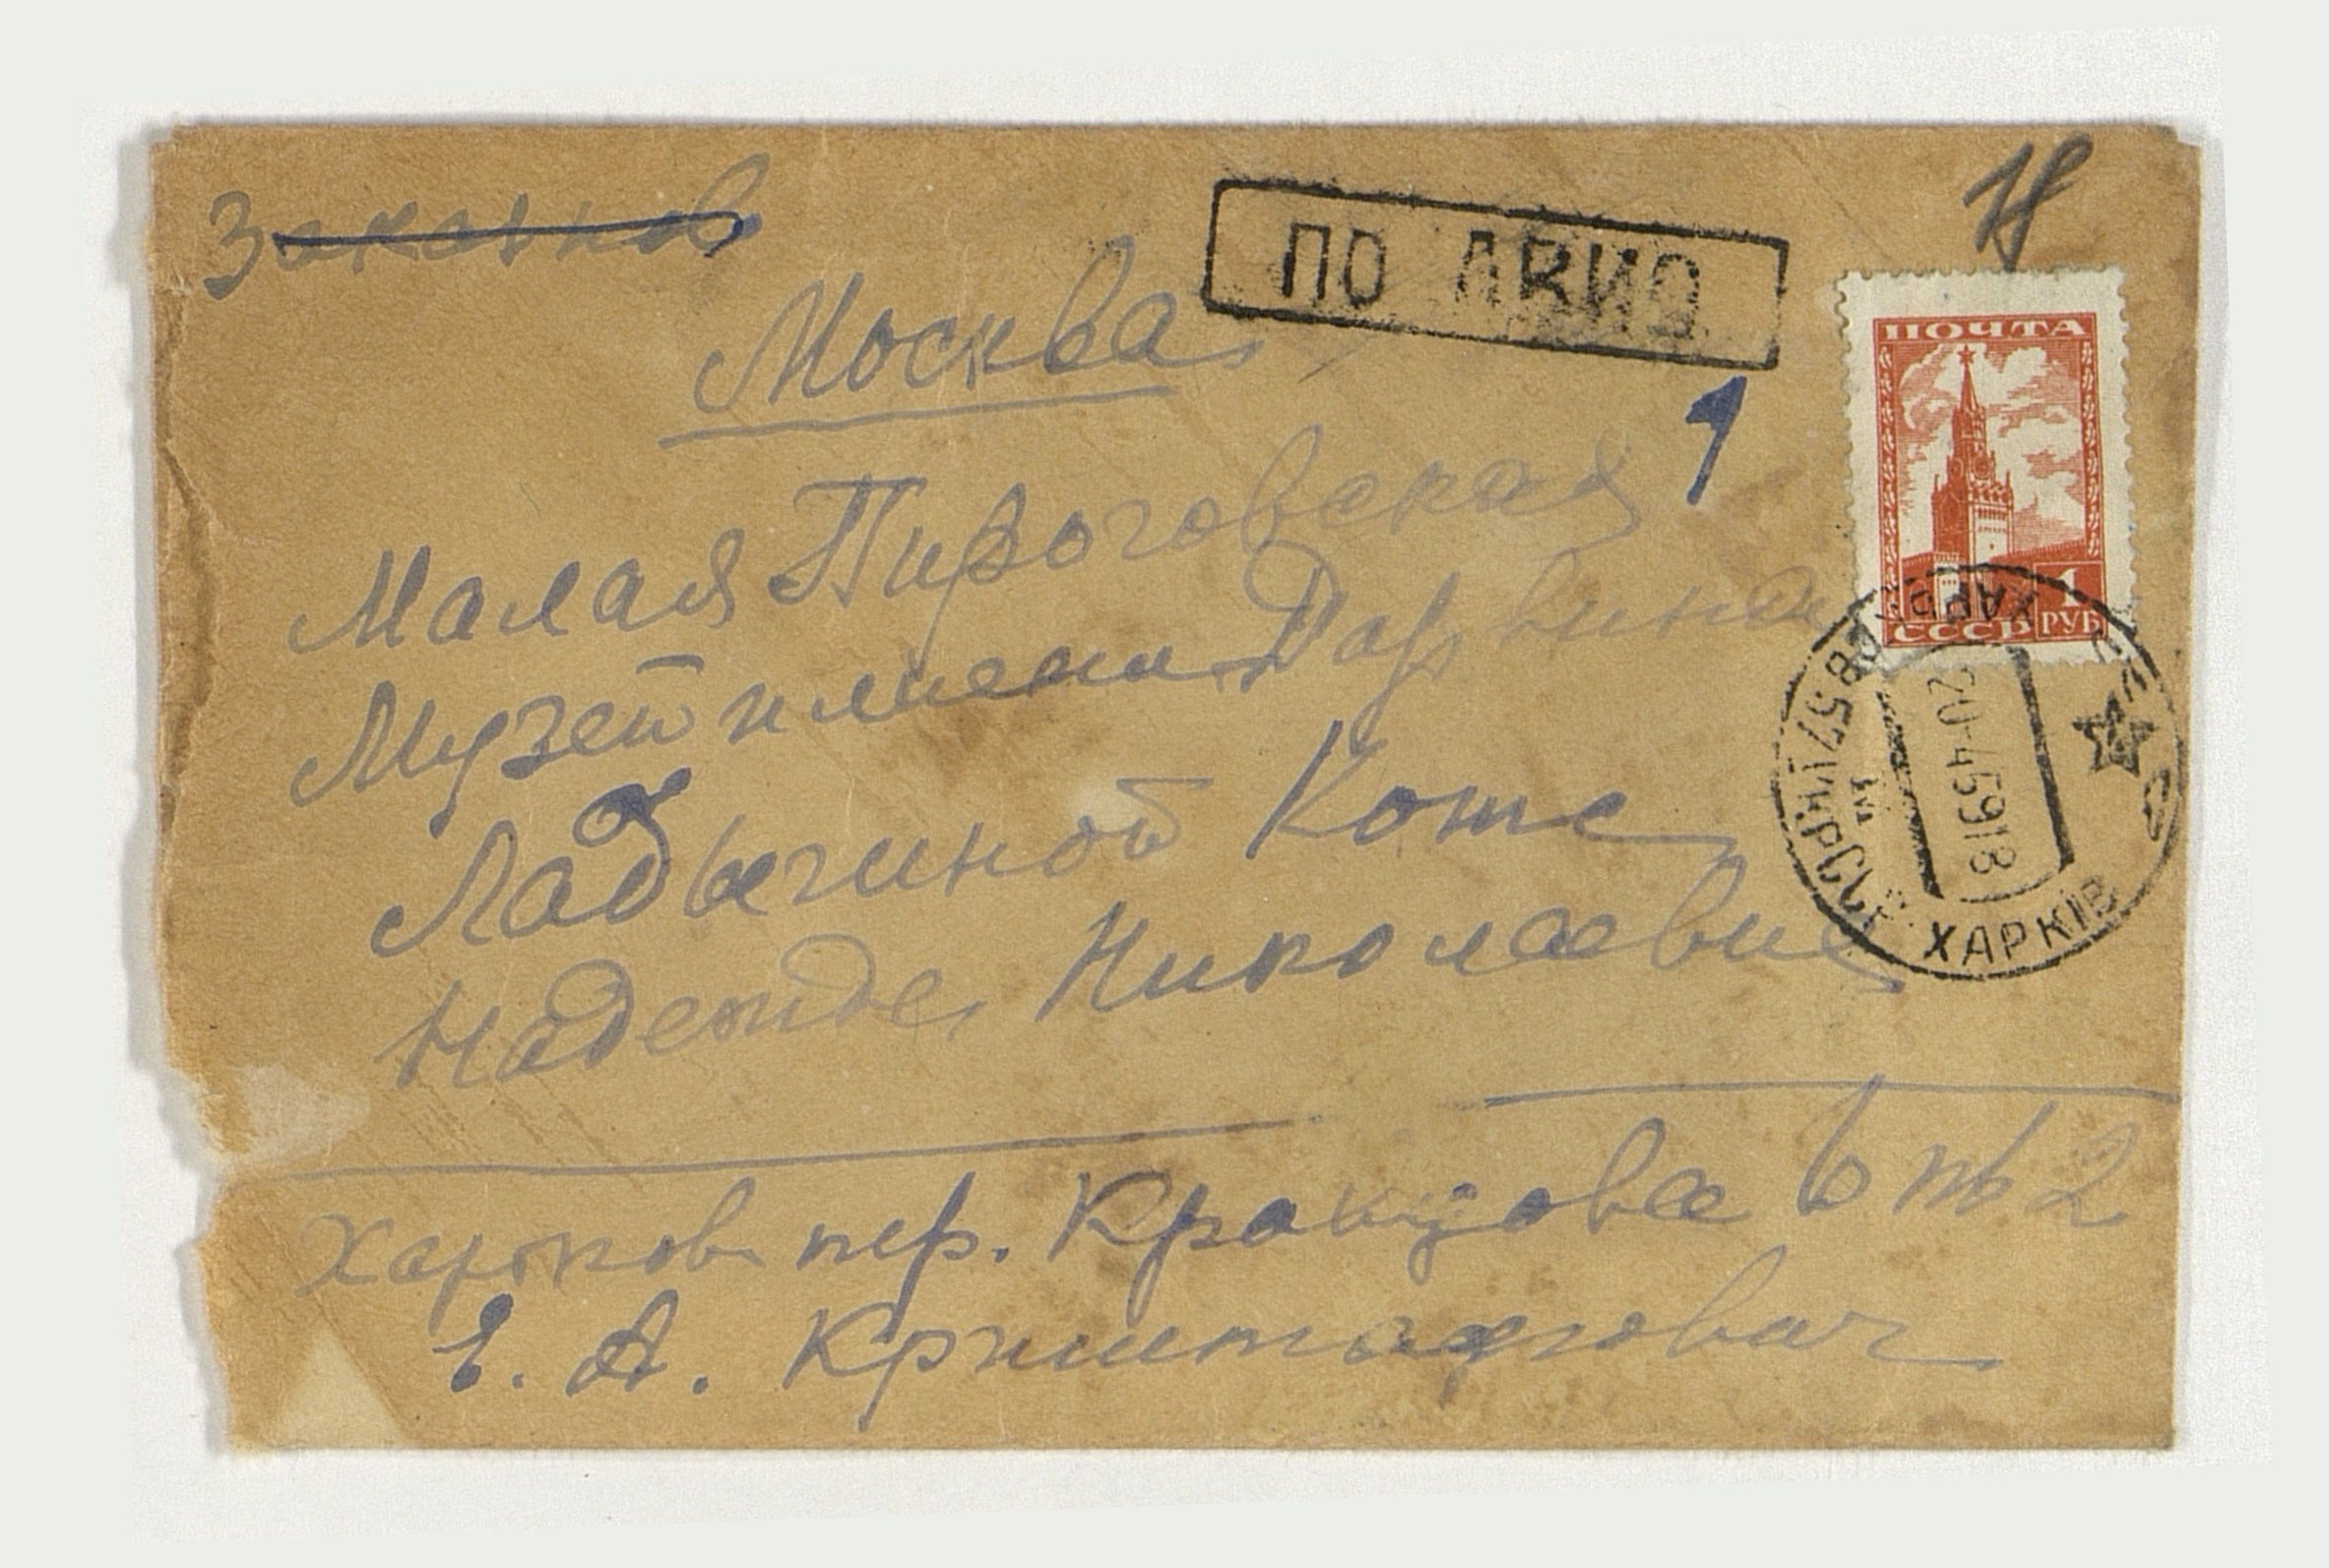 Заказное
ПО АВИО
Москва
ПОЧТА
1
РУБ
СССР
Малая Пироговская 1
Музей имени Дарвина
Ладыгиной Котс
Надежде Николаевне
ХАРКІВ
20-4 59 18
Харьков пер. Кравцова 6 кв 2
Е. А. Криштафович